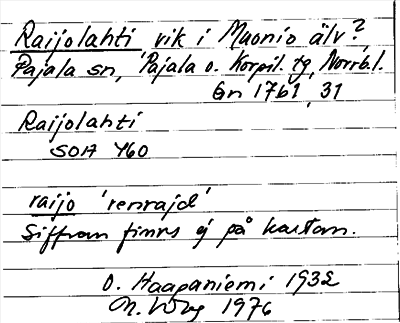 Raijolahti vik i Muonio älv?,
Pajala sn, Pajala o. Korpil. tg, Norrb.l.
Gn 1761, 31
Raijolahti
SOA 460
raijo 'renrajd'
Siffran finns ej på kartan.
O. Haapaniemi 1932
1976